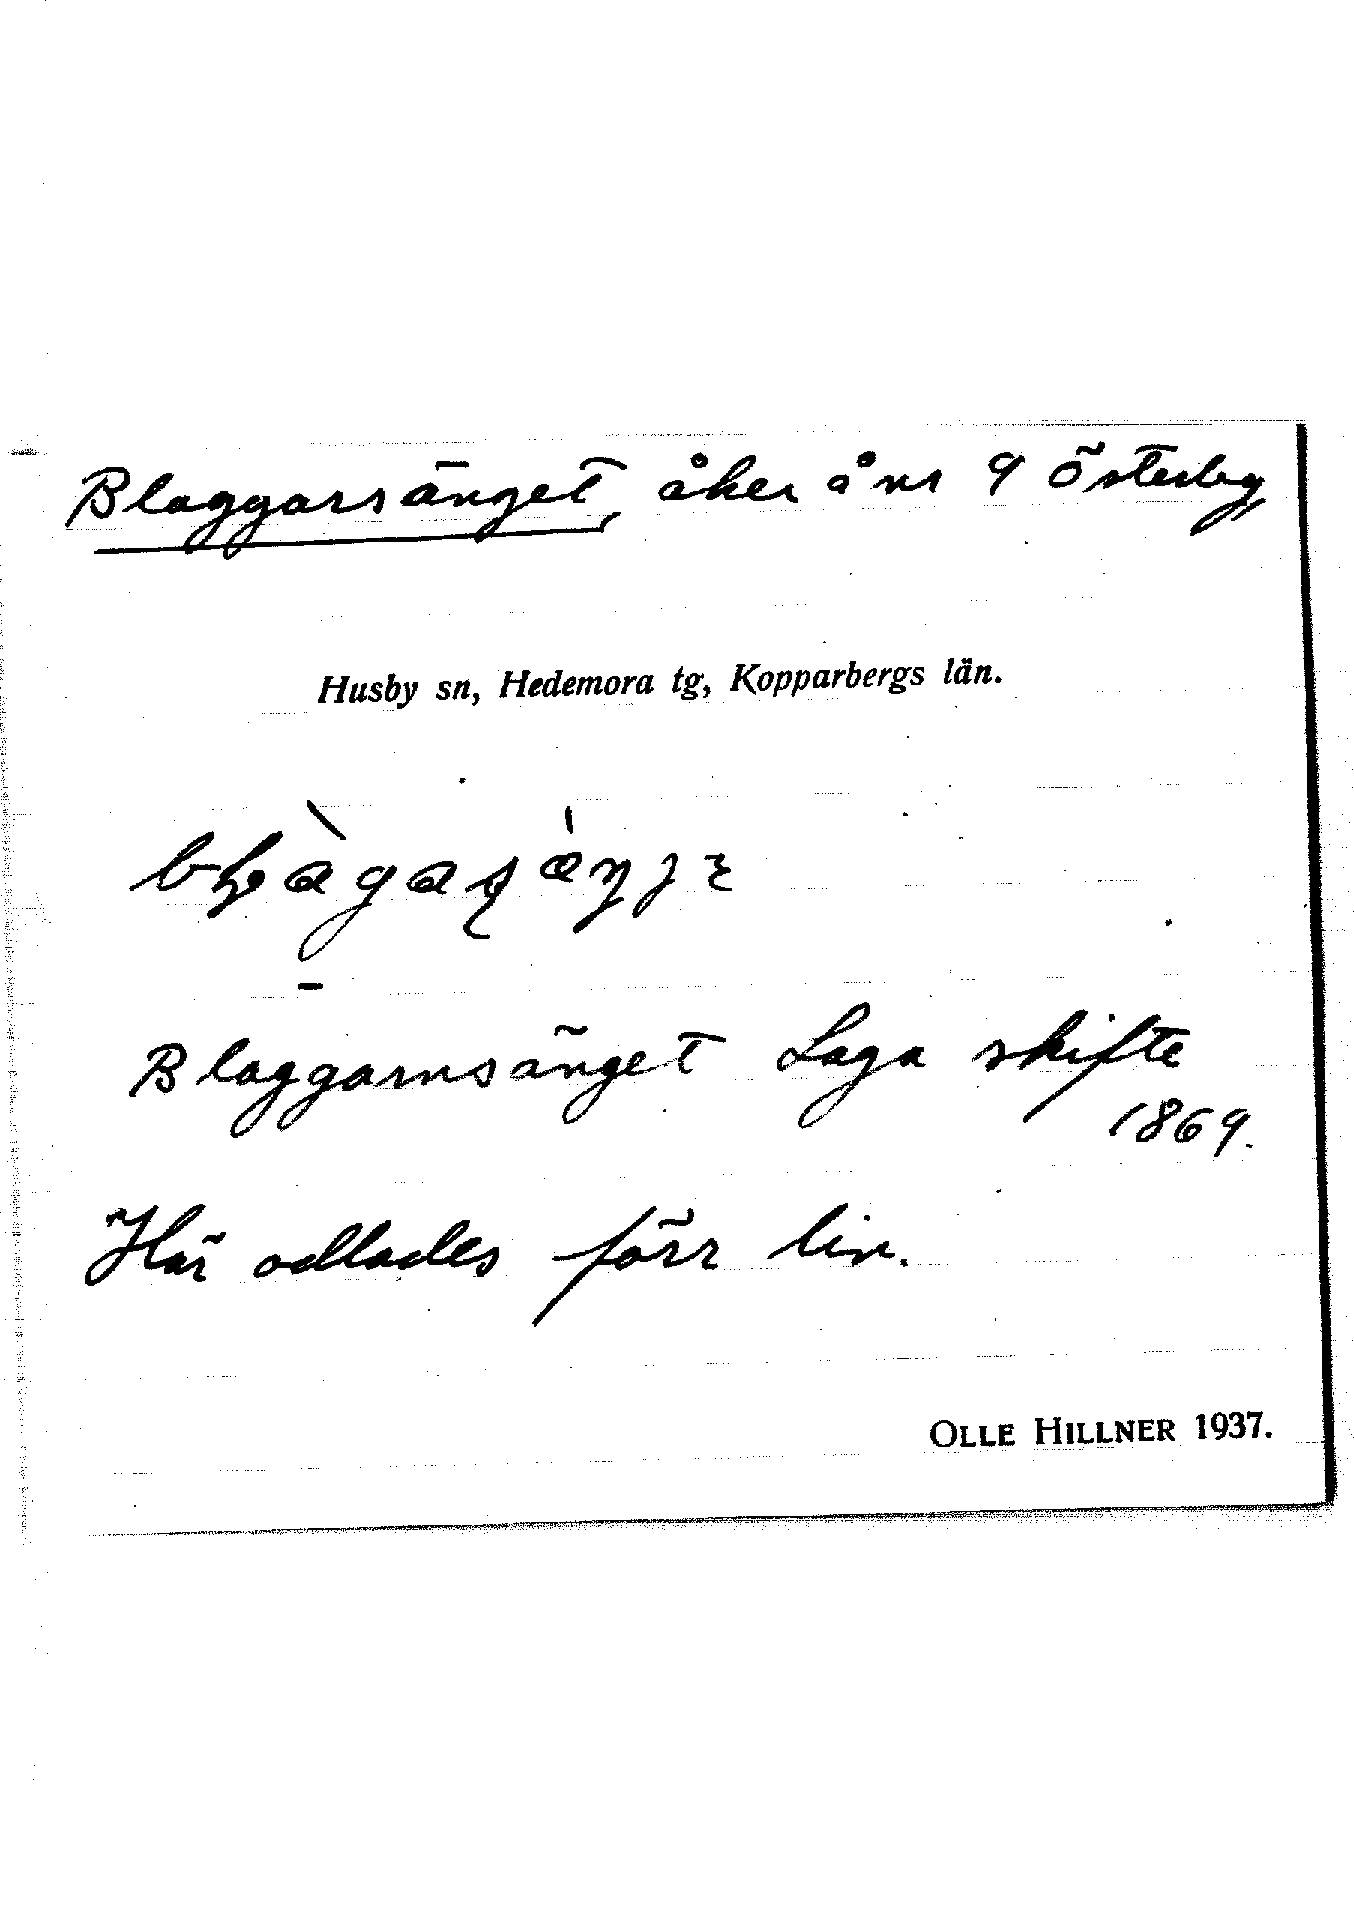 Blaggarsänget, åker å nr 9 Österby
Husby sn, Hedemora tg, Kopparbergs län.
Blaggarnsänget Laga skifte
1869.
Här odlades förr lin.
OLLE HILLNER 1937.